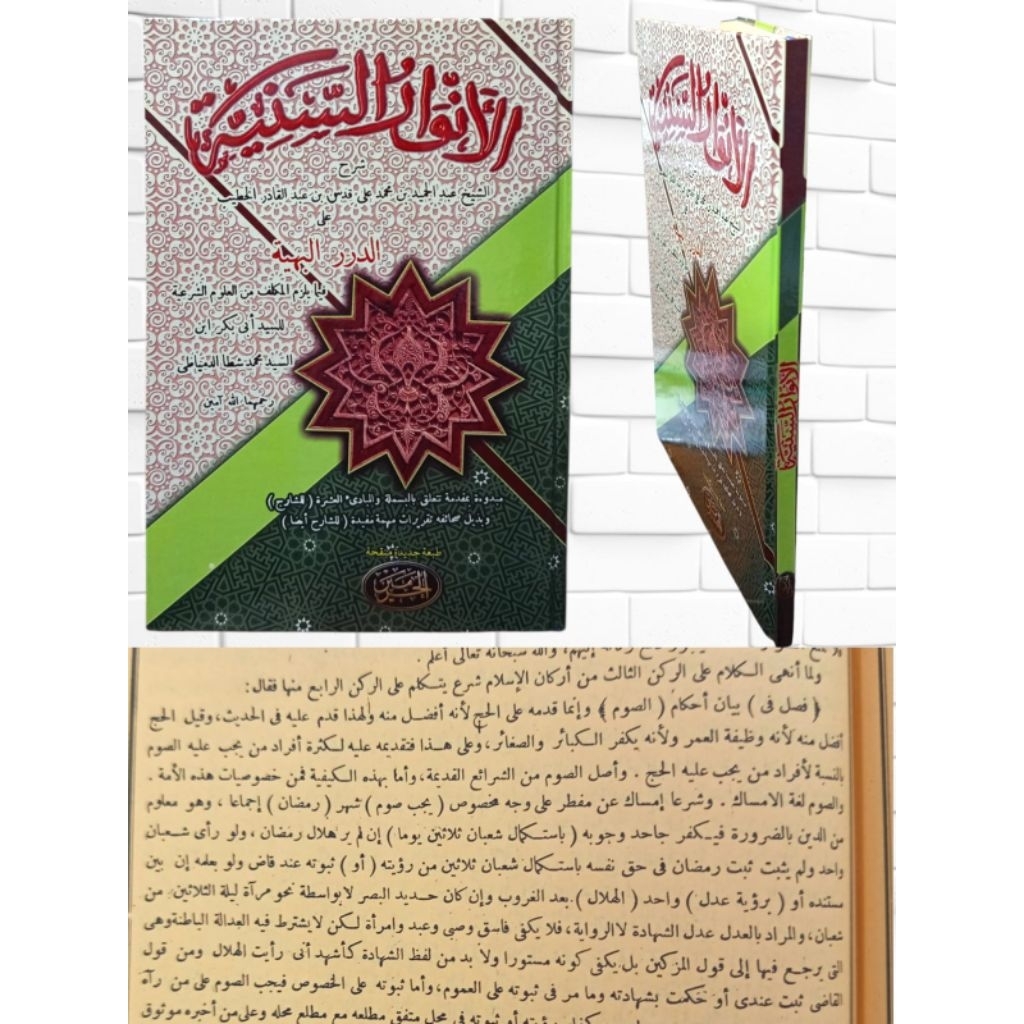 الأنوار السنية
شرح
الشيخ عبد الحميد بن محمد على قدس بن عبد القادر الخطيب
على
الدرر البهية
فيما يلزم المكلف من العلوم الشرعية
للسيد أبى بكر ابن
السيد محمد شطا الدمياطى
رحمهما الله آمين
مبدوءة بمقدمة تتعلق بالبسملة والمبادىء العشرة ( للشارح )
وبذيل صحائفه تقريرات مهمة مفيدة ( للشارح أيضا )
طبعة جديدة منقحة
الحرمين
الأنوار السنية
الأنوار السنية
إليهم، والله سبحانه تعالى أعلم .
ولما أنهى الكلام على الركن الثالث من أركان الإسلام شرع يتكلم على الركن الرابع منها فقال:
﴿ فصل فى ) بيان أحكام ( الصوم ﴾ وإنما قدمه على الحج لأنه أفضل منه ولهذا قدم عليه فى الحديث، وقيل الحج
أفضل منه لأنه وظيفة العمر ولأنه يكفر الكبائر والصغائر، وعلى هذا فتقديمه عليه لكثرة أفراد من يجب عليه الصوم
بالنسبة لأفراد من يجب عليه الحج . وأصل الصوم من الشرائع القديمة، وأما بهذه الكيفية فمن خصوصيات هذه الأمة .
والصوم لغة الامساك . وشرعا إمساك عن مفطر على وجه مخصوص ( يجب صوم ) شهر ( رمضان ) إجماعا ، وهو معلوم
من الدين بالضرورة فيكفر جاحد وجوبه ( باستكمال شعبان ثلاثين يوما ) إن لم ير هلال رمضان ، ولو رأى شعبان
واحد ولم يثبت ثبت رمضان فى حق نفسه باستكمال شعبان ثلاثين من رؤيته ( أو ) ثبوته عند قاض ولو بعلمه إن بين
مستنده أو ( برؤية عدل ) واحد ( الهلال ) بعد الغروب وإن كان حديد البصر لا بواسطة نحو مرآة ليلة الثلاثين من
شعبان، والمراد بالعدل عدل الشهادة لا الرواية، فلا يكفى فاسق وصبى وعبد وامرأة لكن لا يشترط فيه العدالة الباطنة وهى
التى يرجع فيها إلى قول المزكين بل يكفى كونه مستورا ولا بد من لفظ الشهادة كأشهد أنى رأيت الهلال ومن قول
القاضى ثبت عندى أو حكمت بشهادته وما مر فى ثبوته على العموم، وأما ثبوته على الخصوص فيجب الصوم على من رآه
رؤيته أو ثبوته فى محل متفق مطلعه مع مطلع محله وعلى من أخبره موثوق